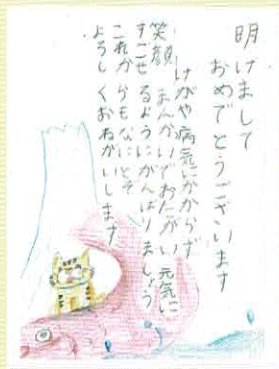 明けまして
おめでとうございます
けがや病気にかからず
笑顔まんかいでおたがい元気に
すごせるようにがんばりましょう
これからもなにとぞ
よろしくおねがいします